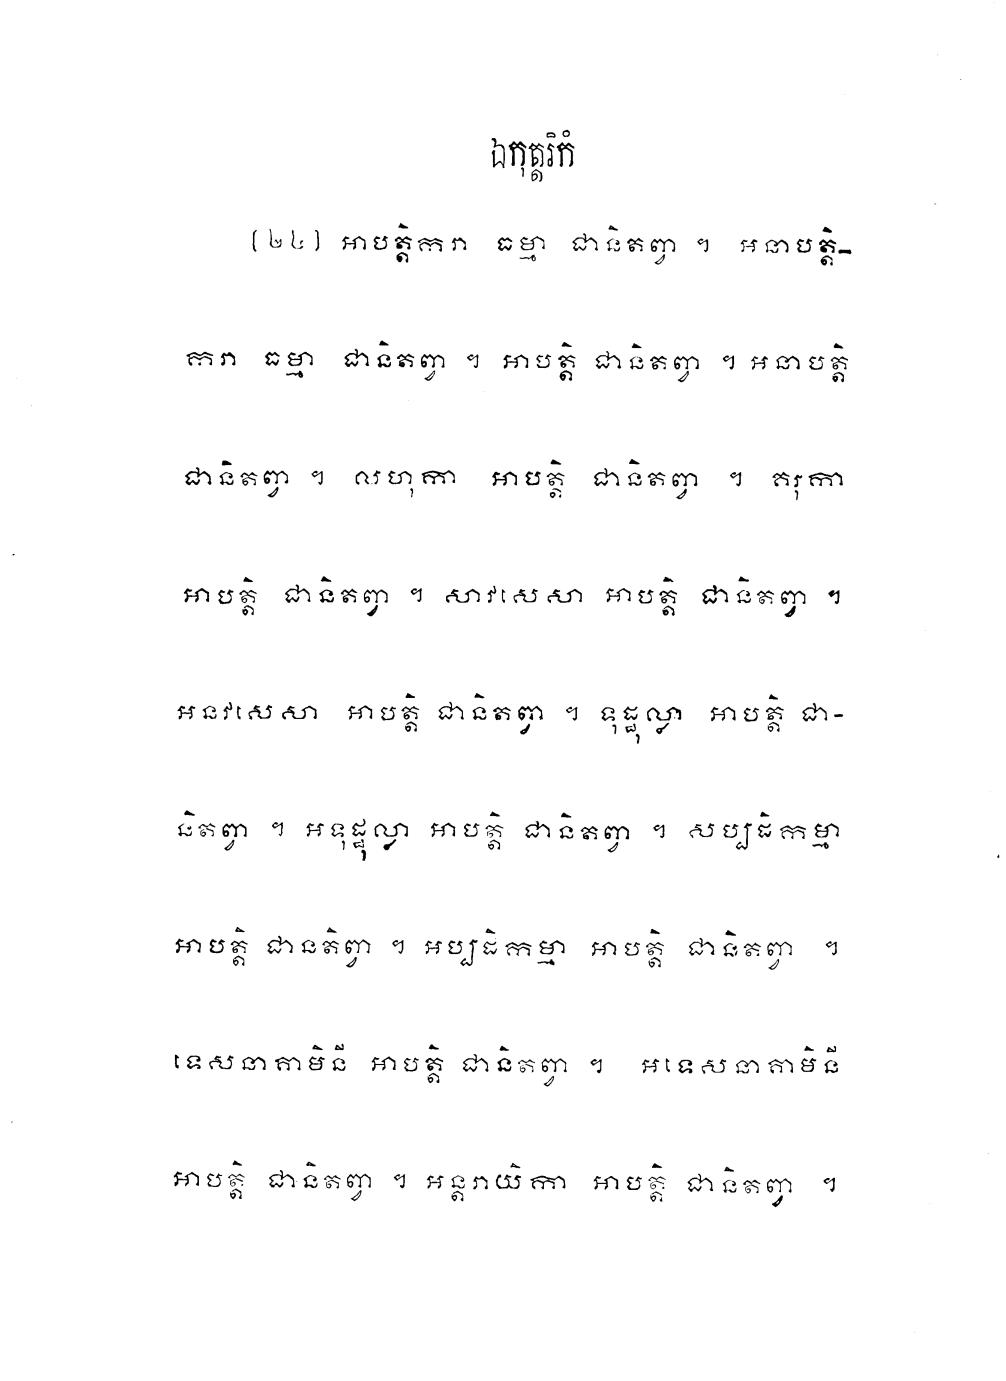 ឯកុត្តរិកំ
(២៤) អាបត្តិករា ធម្មា ជានិតព្វា ។ អនាបត្តិ-
ករា ធម្មា ជានិតព្វា ។ អាបត្តិ ជានិតព្វា ។ អនាបត្តិ
ជានិតព្វា ។ លហុកា អាបត្តិ ជានិតព្វា ។ គរុកា
អាបត្តិ ជានិតព្វា ។ សាវសេសា អាបត្តិ ជានិតព្វា ។
អនវសេសា អាបត្តិ ជានិតព្វា ។ ទុដ្ឋុល្លា អាបត្តិ ជា-
និតព្វា ។ អទុដ្ឋុល្លា អាបត្តិ ជានិតព្វា ។ សប្បដិកម្មា
អាបត្តិ ជានតិព្វា ។ អប្បដិកម្មា អាបត្តិ ជានិតព្វា ។
ទេសនាគាមិនី អាបត្តិ ជានិតព្វា ។ អទេសនាគាមិនី
អាបត្តិ ជានិតព្វា ។ អន្តរាយិកា អាបត្តិ ជានិតព្វា ។